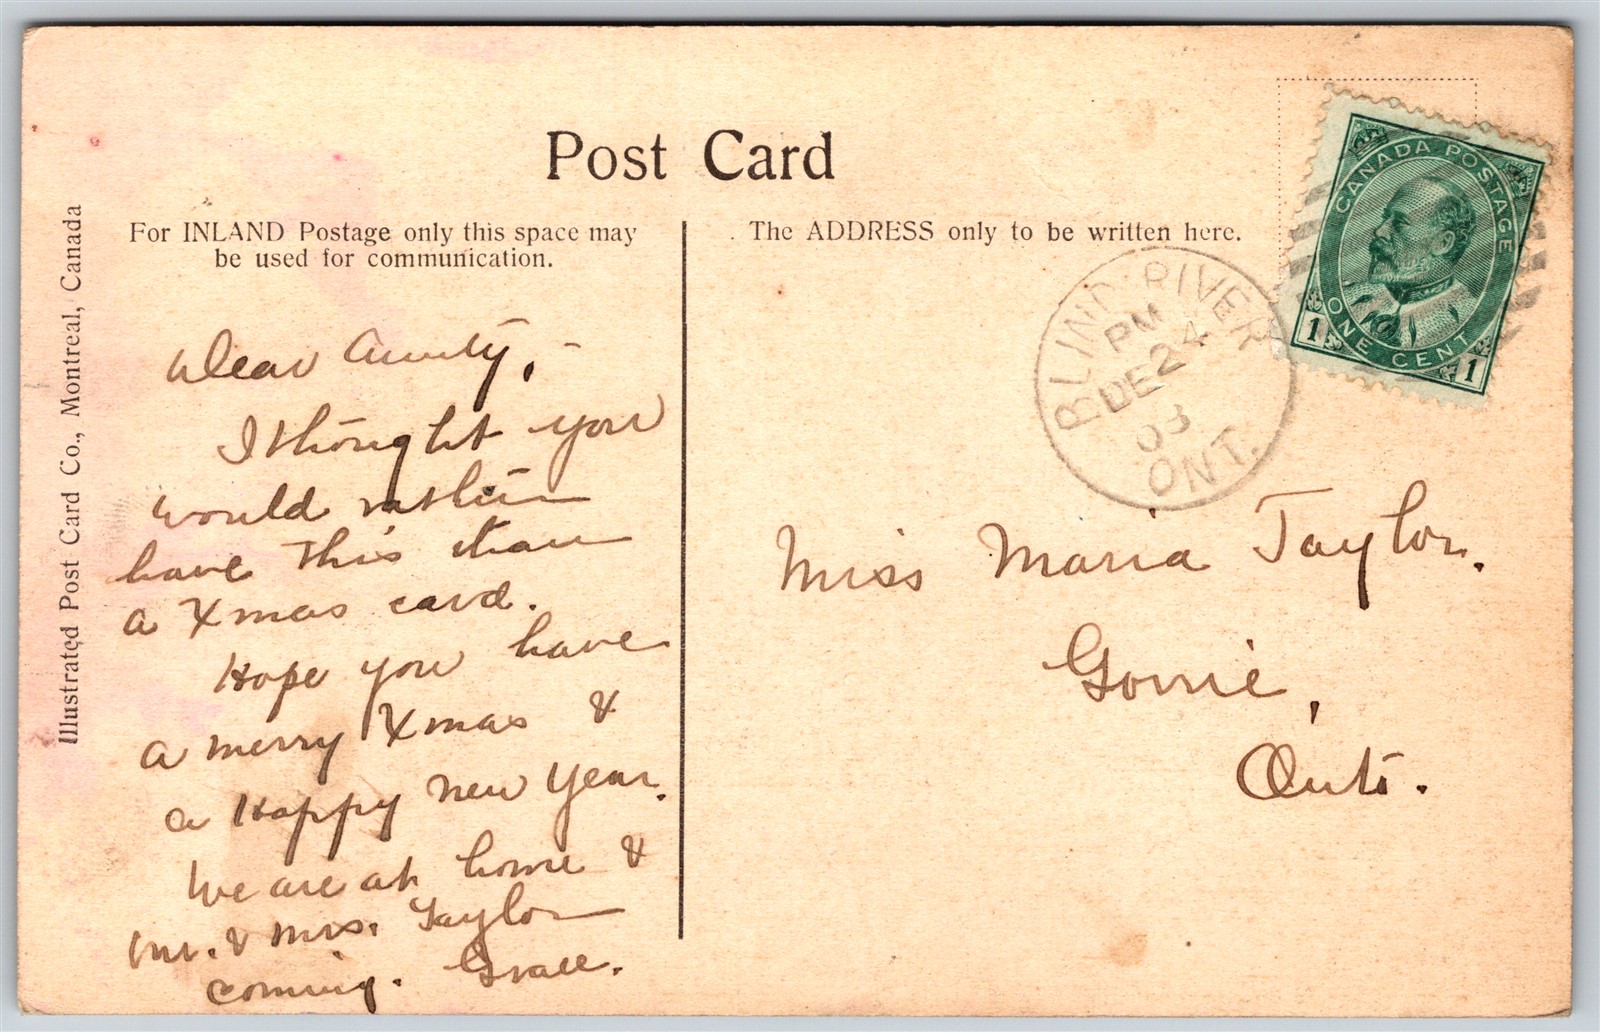 Post Card
For INLAND Postage only this space may
be used for communication.
The ADDRESS only to be written here.
Illustrated Post Card Co., Montreal, Canada
CANADA POSTAGE
ONE CENT
1 1
BLIND RIVER
PM
DE 24
08
ONT.
Dear Aunty, -
I thought you
would rather
have this than
a Xmas card.
Hope you have
a merry Xmas &
a Happy New Year.
We are at home &
Mr. & Mrs. Taylor
coming. Grace.
Miss Maria Taylor.
Gorrie,
Ont.